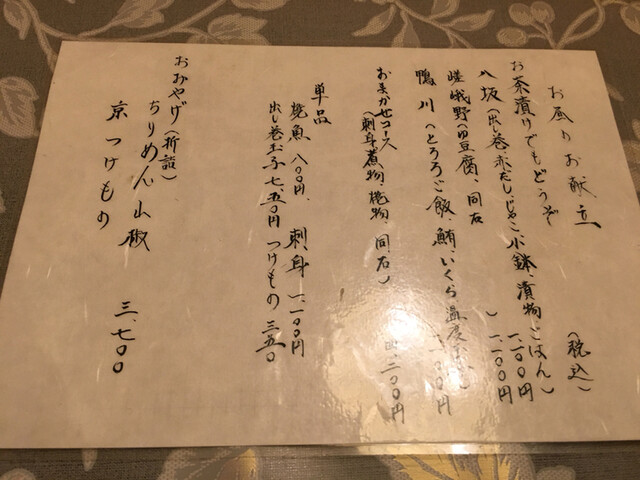 お昼のお献立 (税込)
お茶漬けでもどうぞ
八坂(出し巻、赤だし、じゃこ、小鉢、漬物、ごはん) 一、一〇〇円
嵯峨野(湯豆腐、同右) 一、一〇〇円
鴨川(とろろご飯、鮪、いくら、温度玉
おまかせコース 三〇〇円
(刺身、煮物、焼物、同右)
単品
焼魚 八〇〇円 刺身 一、一〇〇円
出し巻玉子 七五〇円 つけもの 三五〇
おみやげ(折詰)
ちりめん山椒
京つけもの 三、七〇〇